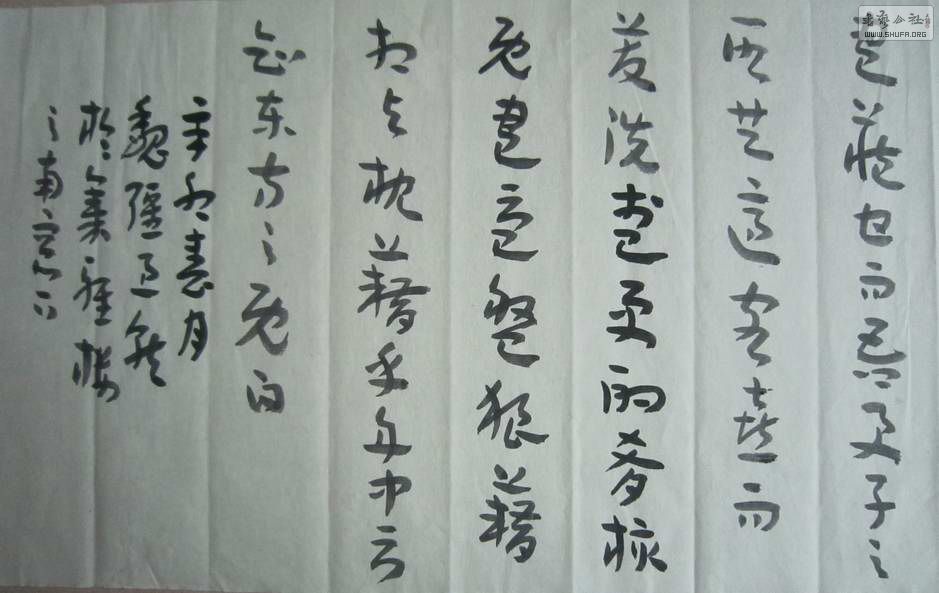 盡藏也而吾与子之
所共適客喜而
笑洗盏更酌肴核
既盡杯盤狼藉
相与枕藉乎舟中不
知东方之既白
辛卯春月
魏疆
於集雅楼
之南窗下
书艺公社
WWW.SHUFA.ORG